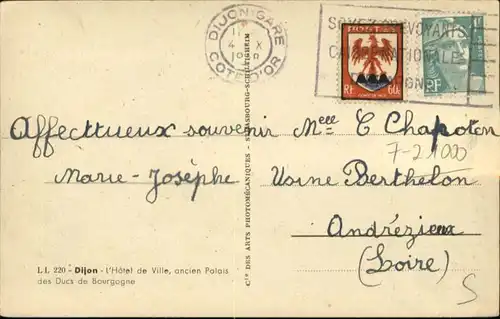 DIJON GARE
COTE D'OR
POSTES
RF 60c
RF
CAISSE NATIONALE
Affecttueux souvenir
Marie-Josèphe
Melle C Chapoton
7-2 1000
Usine Berthelon
Andrézieux
(Loire)
S
LL 220 - Dijon - L'Hôtel de Ville, ancien Palais
des Ducs de Bourgogne
Cie DES ARTS PHOTOMÉCANIQUES - STRASBOURG-SCHILTIGHEIM